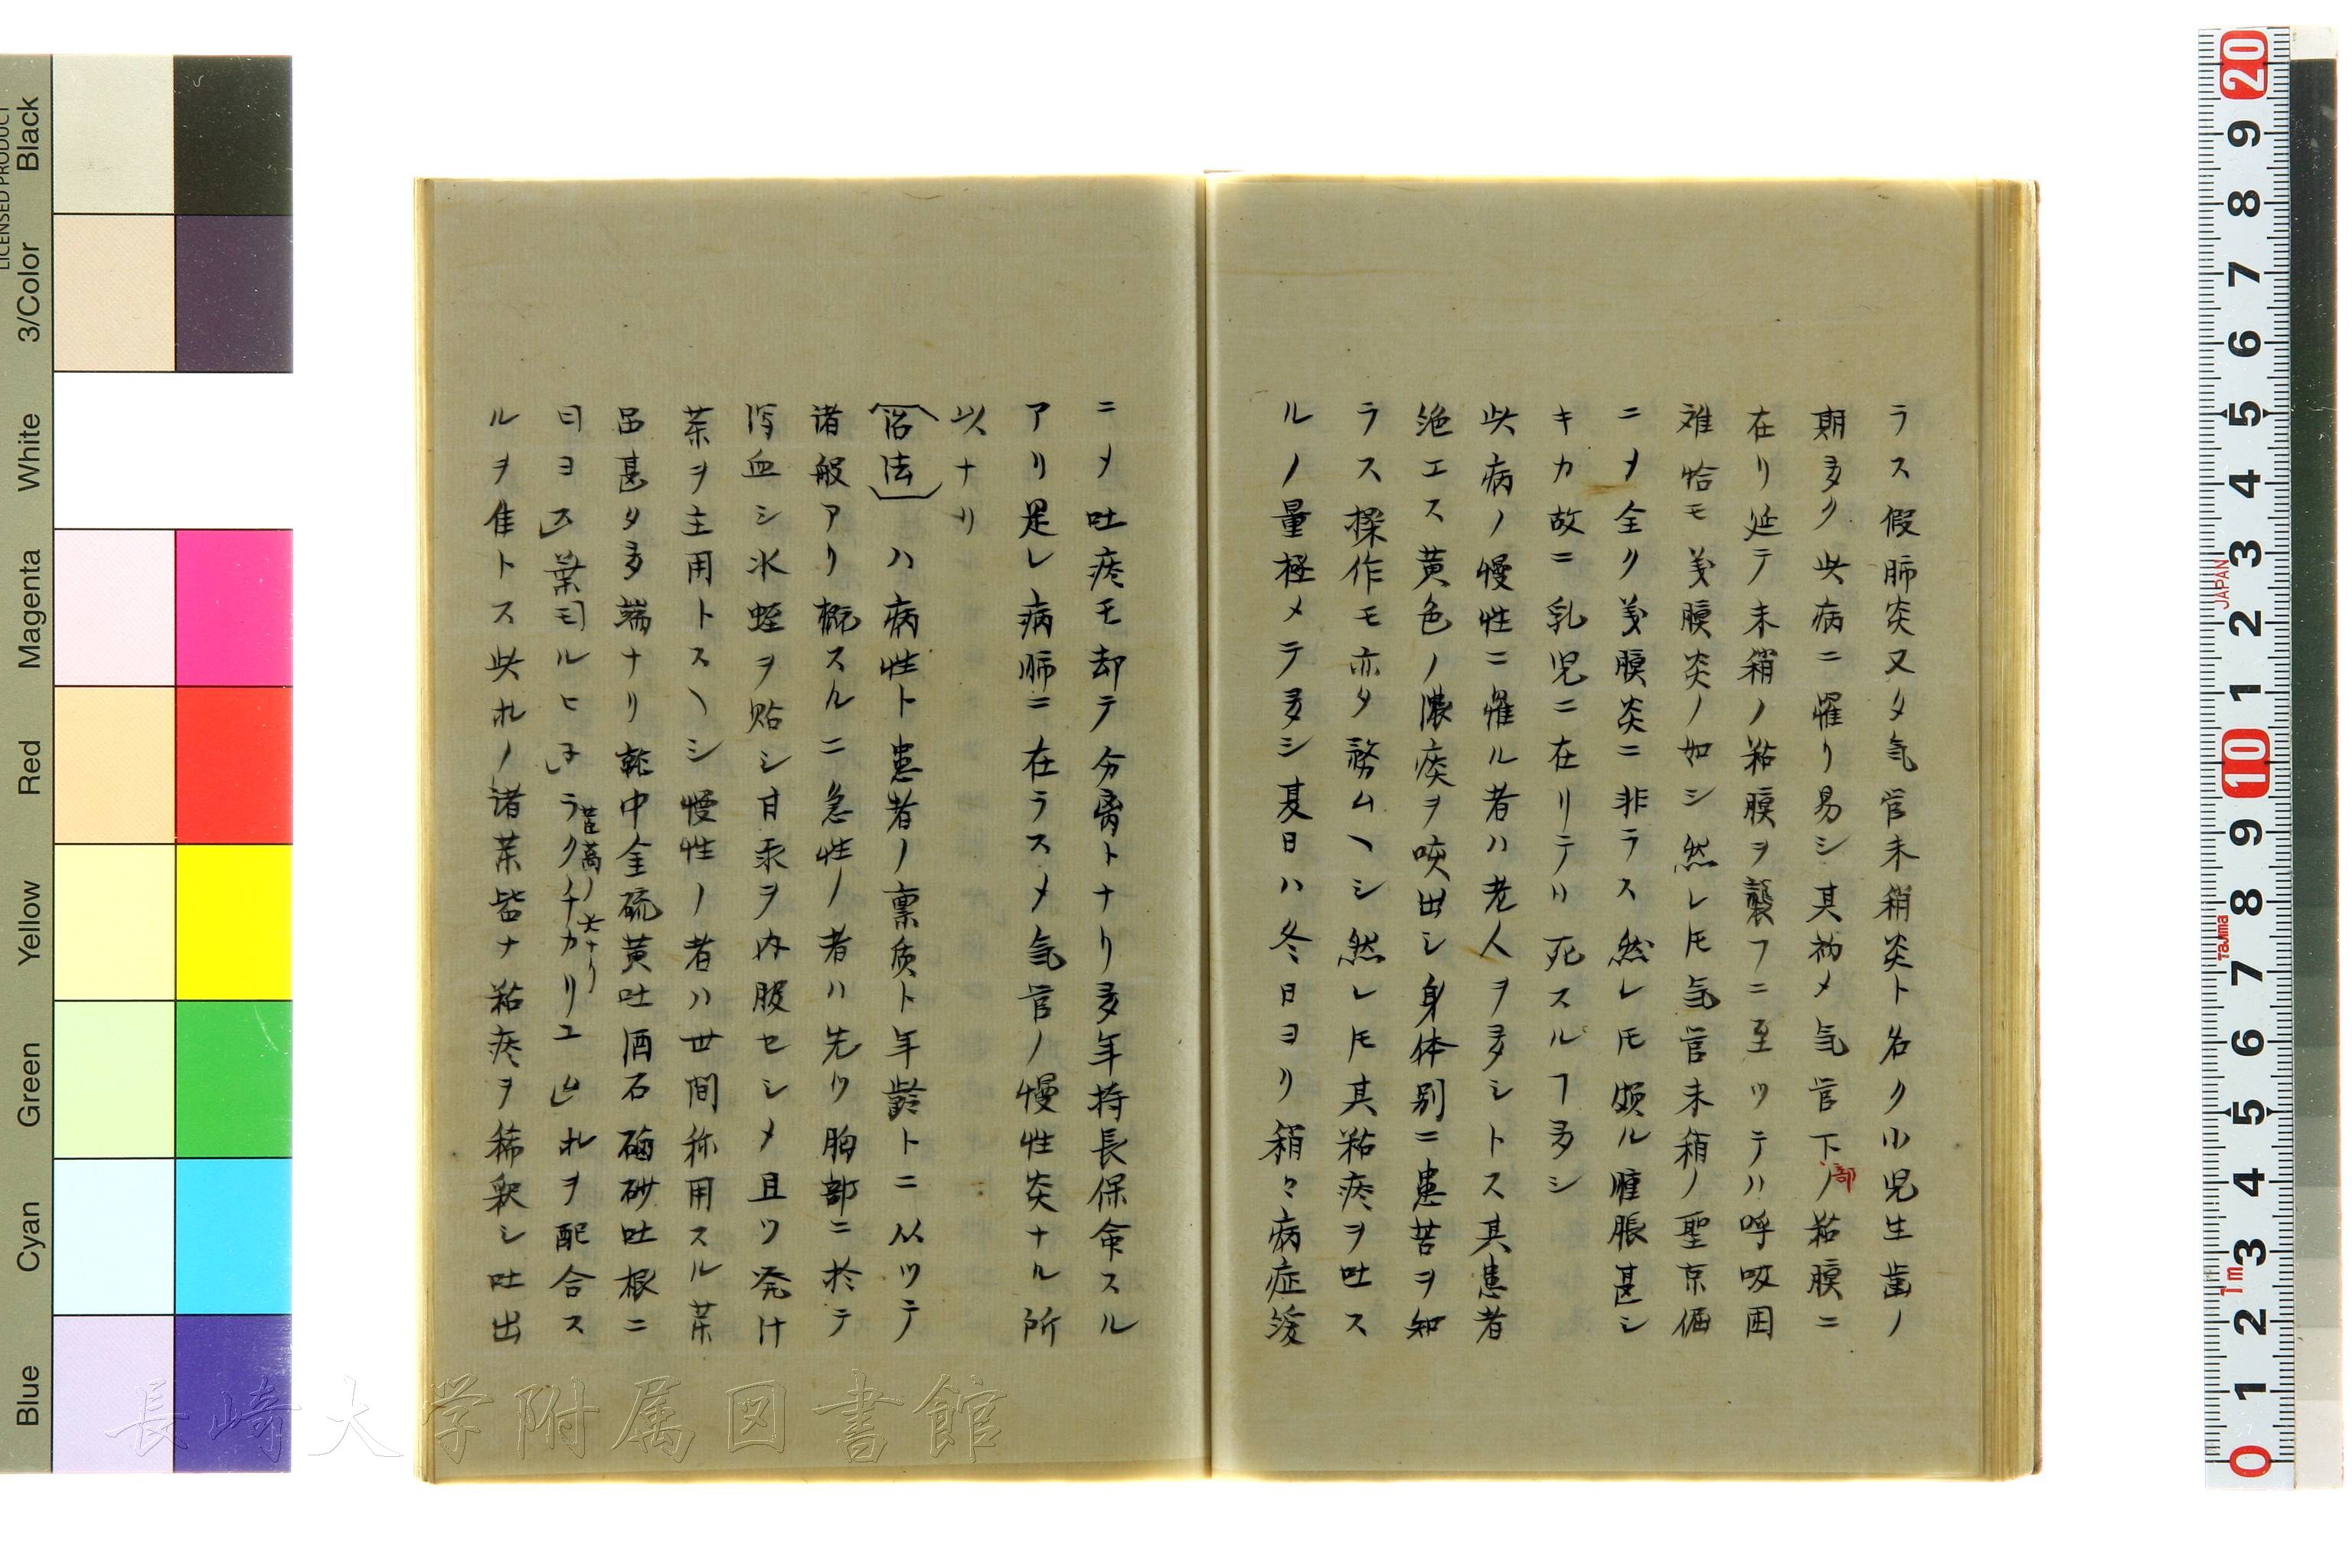 ラス假肺炎又タ気管末稍炎ト名ク小児生歯ノ
期多ク此病ニ罹リ易シ其初メ気官下部ノ粘膜ニ
在リ延テ末稍ノ粘膜ヲ襲フニ至ツテハ呼吸困
难恰モ義膜炎ノ如シ然レ𪜈気官末稍ノ聖京偭
ニ〆全ク義膜炎ニ非ラス然レ𪜈頗ル腫脹甚シ
キカ故ニ乳児ニ在リテハ死スルヿ多シ
此病ノ慢性ニ罹ル者ハ老人ヲ多シトス其患者
絶エス黄色ノ濃痰ヲ咳出シ身体別ニ患苦ヲ知
ラス操作モ亦タ務ムヘシ然レ𪜈其粘痰ヲ吐ス
ルノ量極メテ多シ夏日ハ冬日ヨリ稍々病症緩
ニ〆吐痰モ却テ分离トナリ多年持長保命スル
アリ是レ病肺ニ在ラス〆気官ノ慢性炎ナル所
以ナリ
(治法) ハ病性ト患者ノ禀质ト年齡トニ从ツテ
诸般アリ概スルニ急性ノ者ハ先ツ胸部ニ於テ
泻血シ水蛭ヲ貼シ甘汞ヲ内服セシメ且ツ発汗
茶ヲ主用トスヘシ慢性ノ者ハ世間称用スル茶
品甚タ多端ナリ乾中金硫黄吐酒石磠砂吐根ニ
ルヲ佳トス此ホノ诸茶皆ナ粘痰ヲ稀釈シ吐出
長崎大学附属図書館
LICENSED PRODUCT
Black
3/Color
White
Magenta
Red
Yellow
Green
Cyan
Blue
20
9
8
7
6
5
4
3
2
1
10
9
8
7
6
5
4
3
2
1
0
JAPAN
Tajima
1m